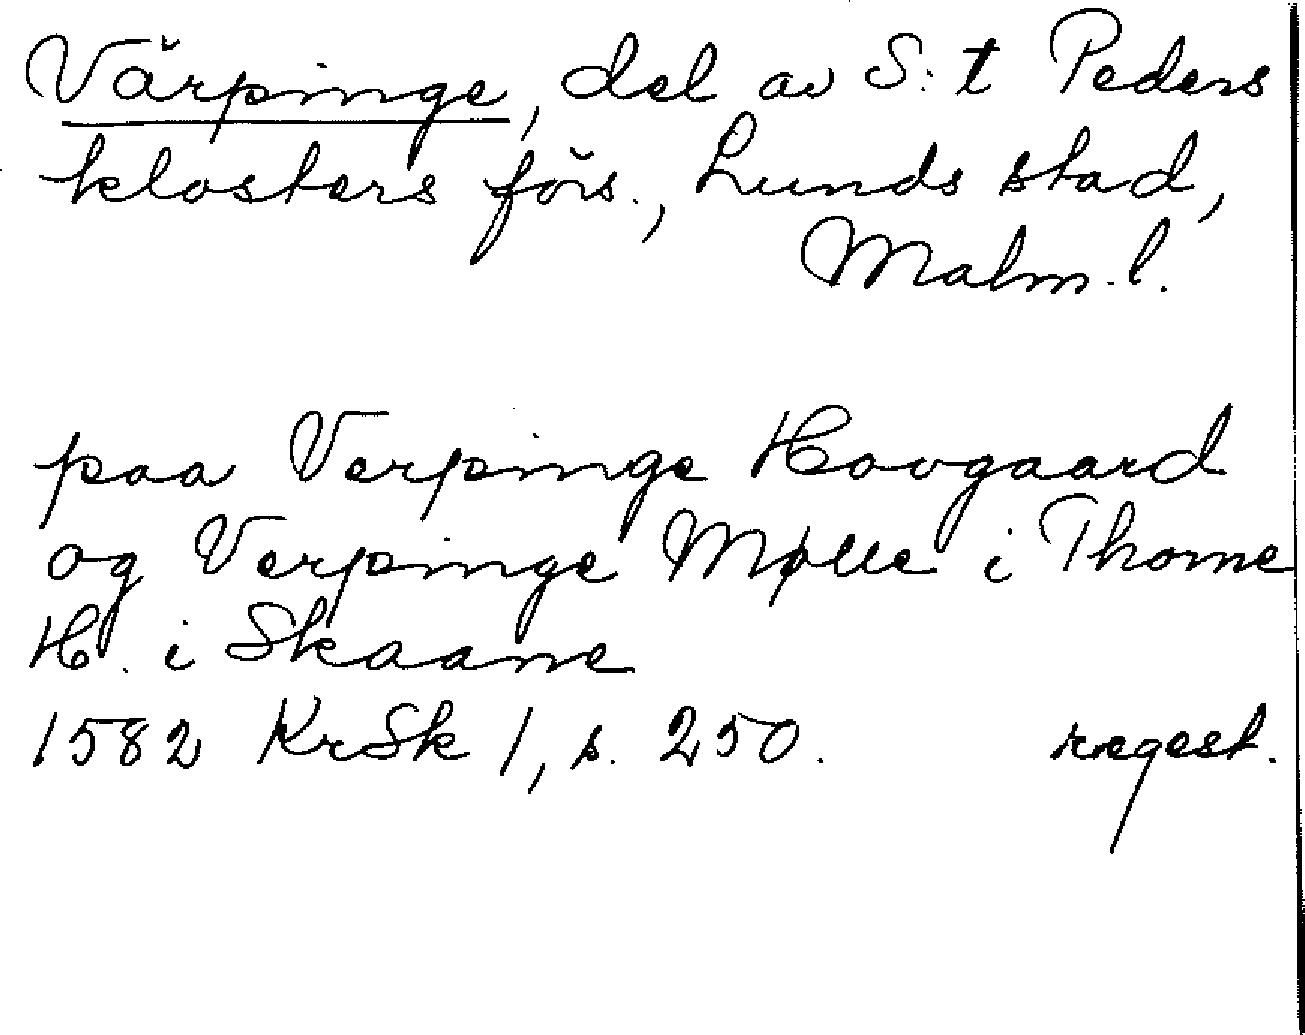 Värpinge, del av S:t Peders
klosters förs., Lunds stad,
Malm. l.
paa Verpinge Hovgaard
og Verpinge Mølle i Thorne
H. i Skaane
1582 KrSk 1, s. 250. regest.